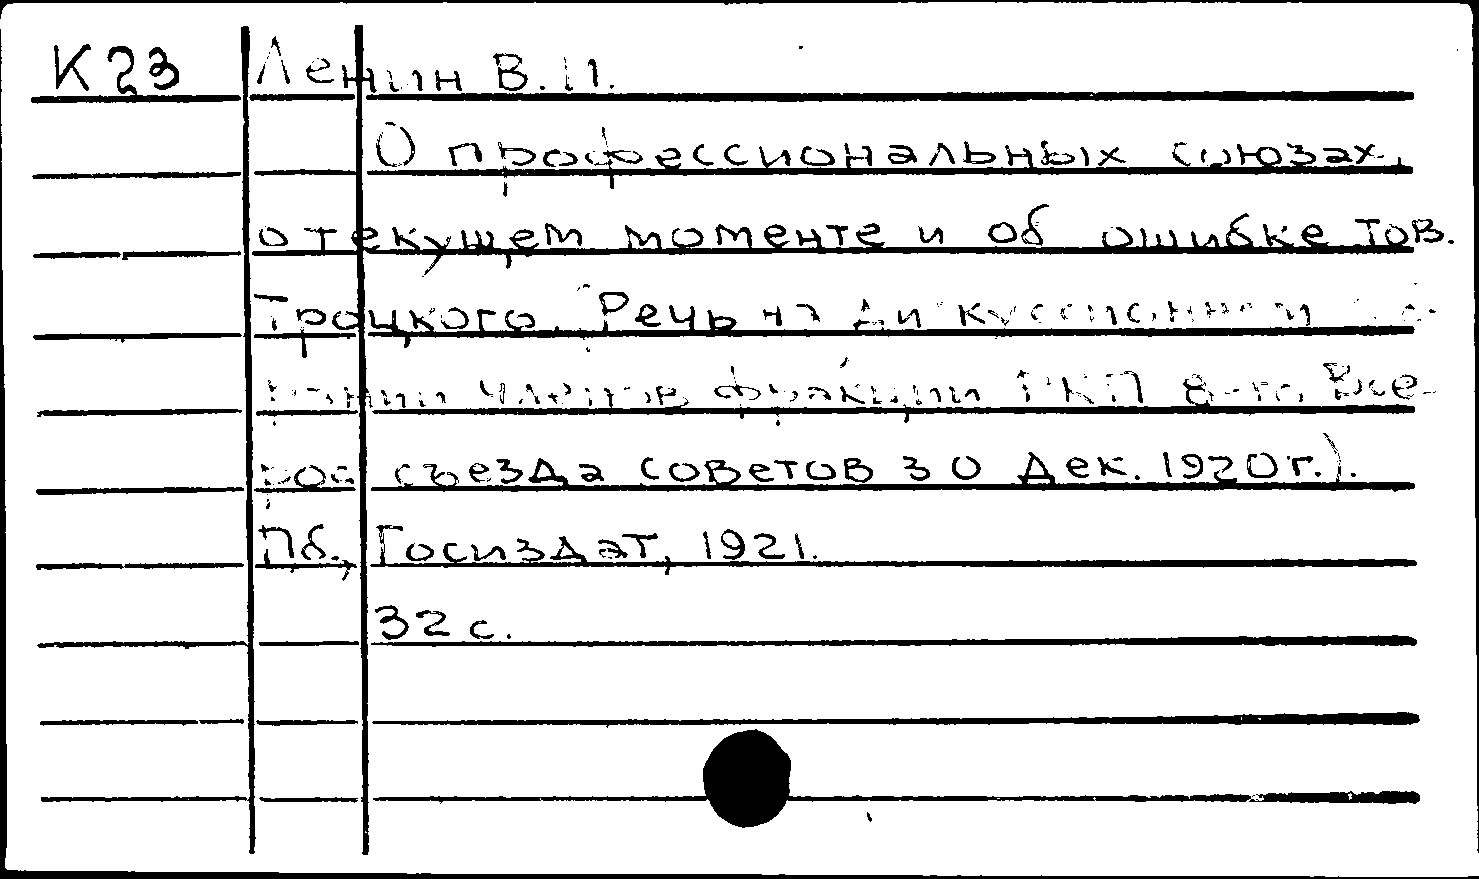 К23 Ленин В.И.
О профессиональных союзах,
о текущем моменте и об ошибке тов.
Троцкого. (Речь на дискуссионном
членов фракции РКП 8-го Все-
рос. съезда советов 30 дек. 1920г.).
Пб., Госиздат, 1921.
32 с.